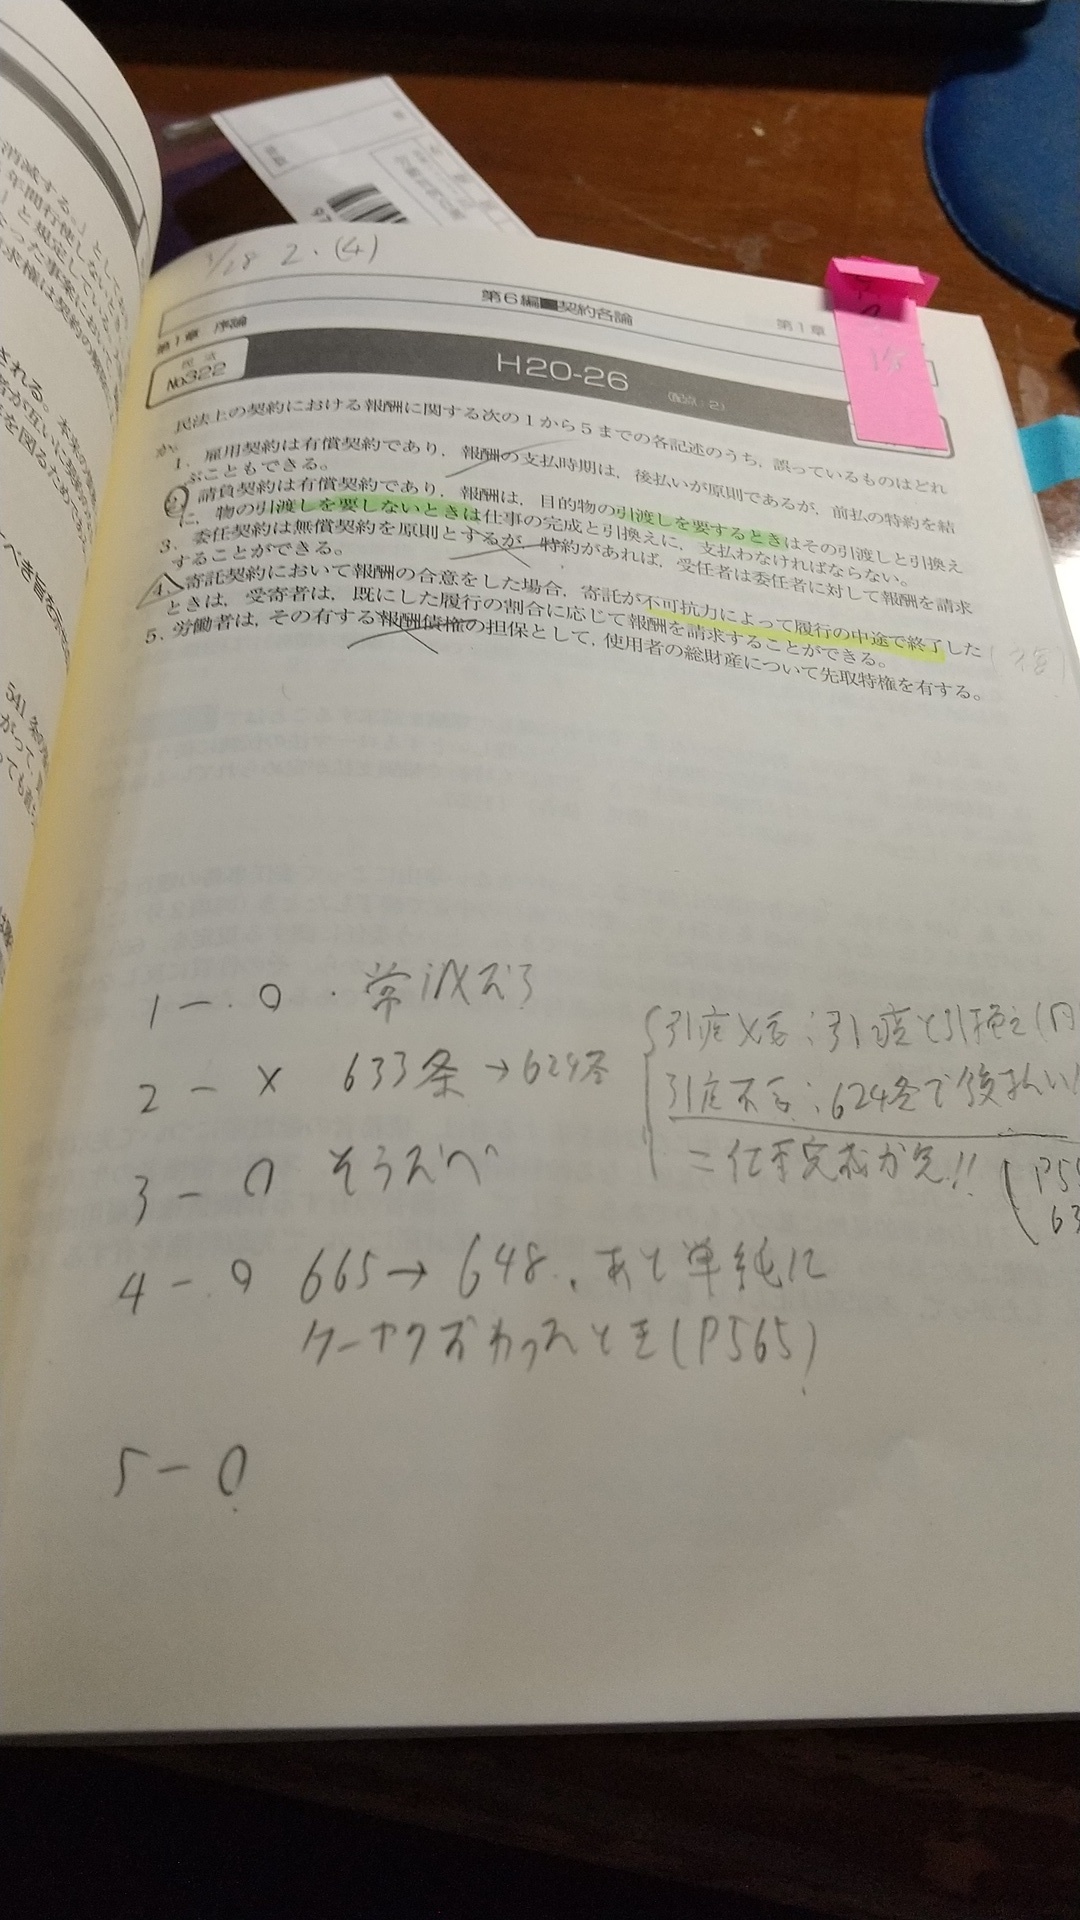 3/28 2.(4)
第6編■契約各論
第1章 序論
第1章
民法
No.322
H20-26
(配点:2)
民法上の契約における報酬に関する次の1から5までの各記述のうち,誤っているものはどれ
か。
1. 雇用契約は有償契約であり,報酬の支払時期は,後払いが原則であるが,前払の特約を結
ぶこともできる。
2. 請負契約は有償契約であり,報酬は,目的物の引渡しを要するときはその引渡しと引換え
に,物の引渡しを要しないときは仕事の完成と引換えに,支払わなければならない。
3. 委任契約は無償契約を原則とするが,特約があれば,受任者は委任者に対して報酬を請求
することができる。
4. 寄託契約において報酬の合意をした場合,寄託が不可抗力によって履行の中途で終了した
ときは,受寄者は,既にした履行の割合に応じて報酬を請求することができる。
5. 労働者は,その有する報酬債権の担保として,使用者の総財産について先取特権を有する。
1-.○ .常識だろ
2-× 633条→624条
引渡必要:引渡と引換え(同
引渡不要:624条で後払い
=仕事完成が先!!
(P55
63
3-○ そうだべ
4-.○ 665→648.あと単純に
ケーヤクズおわったとき(P565)
5-○
消滅する。」とし
年間行使しないと
」と規定している
なった事案におい
請求権は契約の解
される。本来の
541条の
がって,
っても直
べき旨を